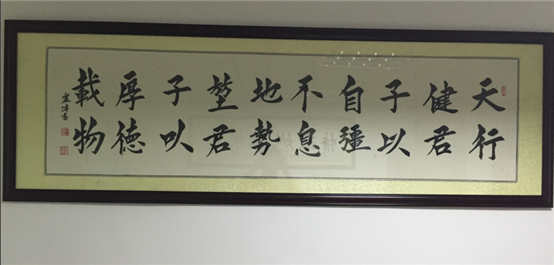 天行
健君
子以
自彊
不息
地勢
堃君
子以
厚德
載物